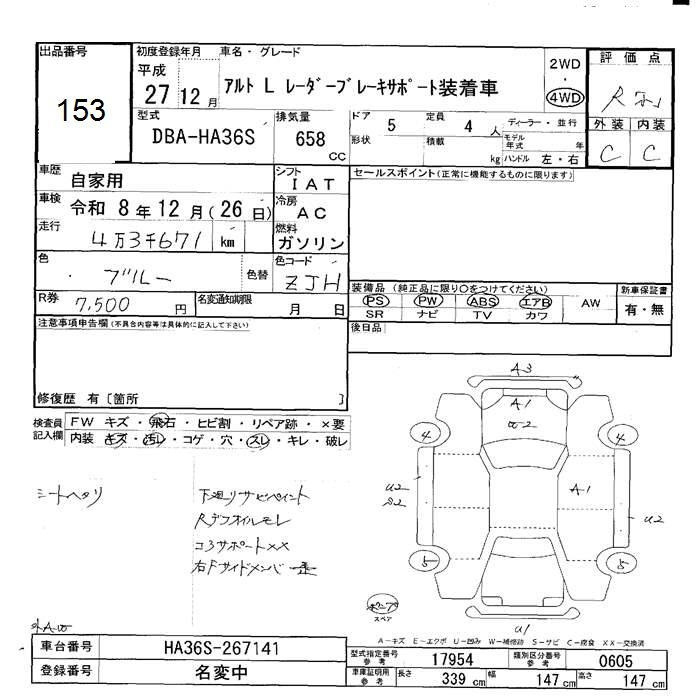 出品番号
153
初度登録年月 車名・グレード
平成
27 12 月
アルト L レーダーブレーキサポート装着車
2WD
・
4WD
評 価 点
R
外 装 内 装
C C
型式
DBA-HA36S
排気量
658
CC
ドア 5 定員 4 人
形状 積載 kg
ディーラー・並行
モデル
年式 年
ハンドル 左・右
車歴
自家用
シフト
I A T
車検
令和 8 年 12 月 ( 26 日)
冷房
A C
走行
4万3千671 km
燃料
ガソリン
色
ブルー
色替
色コード
ZJH
R券
7,500 円
名変通知期限
月 日
セールスポイント(正常に機能するものに限ります)
装備品 (純正品に限り○をつけてください)
PS PW ABS エアB AW
SR ナビ TV カワ
新車保証書
有・無
後日品
注意事項申告欄(不具合内容等は具体的に記入して下さい)
修復歴 有〔箇所 〕
検査員
記入欄
FW キズ・飛石・ヒビ割・リペア跡・×要
内装 キズ・汚レ・コゲ・穴・スレ・キレ・破レ
シートヘタリ
下廻リサビペイント
Rデフオイルモレ
コアサポートXX
右Fサイドメンバー歪
A3
A1
U2
4 4
U2
S2
A1
U2
5 5
U1
スペア
A-キズ E-エクボ U-凹み W-補修跡 S-サビ C-腐食 XX-交換済
車台番号
HA36S-267141
登録番号
名変中
型式指定番号
参考
17954
類別区分番号
参考
0605
車庫証明用
参考
長さ 339 cm 幅 147 cm 高さ 147 cm